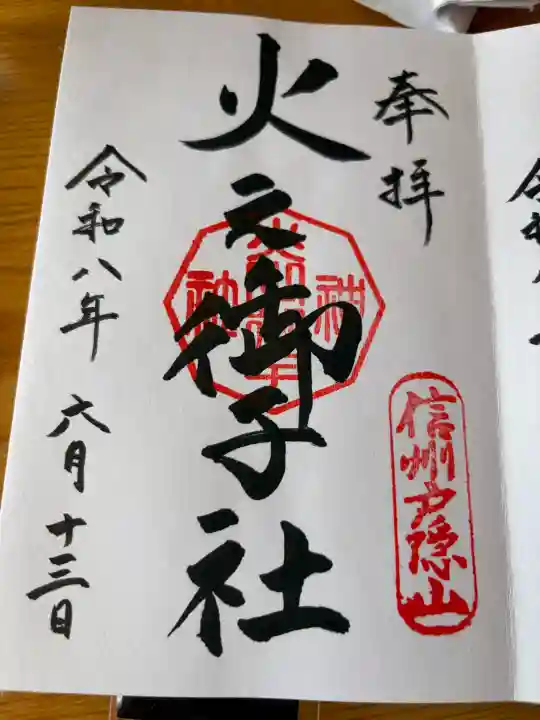 奉拝
信州戸隠山
火之御子社
令和八年 六月十三日